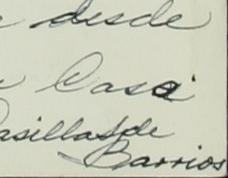 desde
Casa
asillas de
Barrios